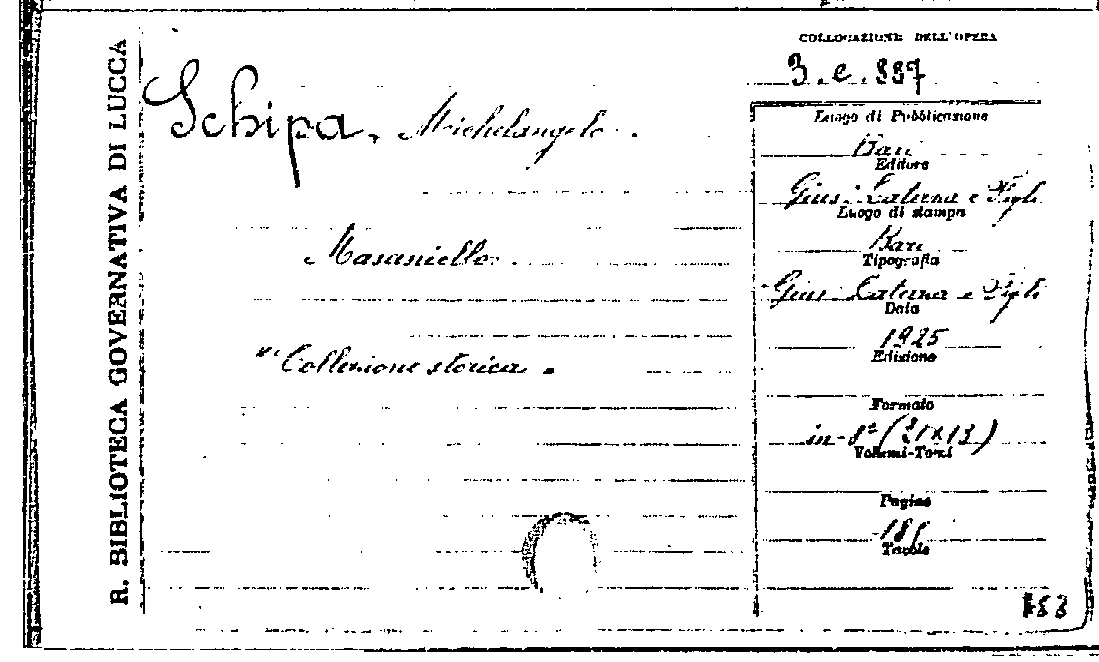 R. BIBLIOTECA GOVERNATIVA DI LUCCA
Schipa, Michelangelo.
Masaniello.
"Collezione storica"
COLLOCAZIONE DELL'OPERA
3.e.337
Luogo di Pubblicazione
Bari
Editore
Gius. Laterza e Figli
Luogo di stampa
Bari
Tipografia
Gius. Laterza e Figli
Data
1925
Edizione
Formato
in-8º (21x13)
Volumi-Tomi
Pagine
Tavole